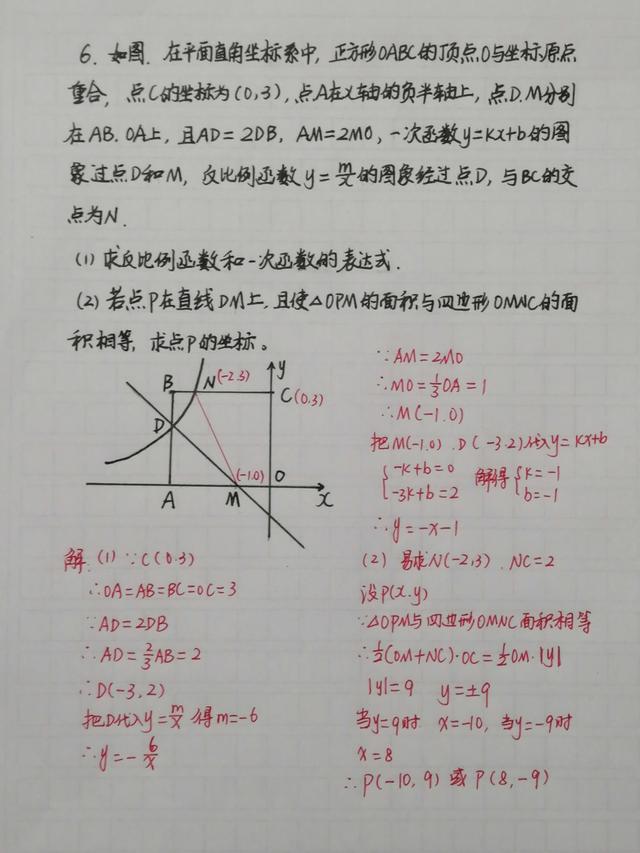 6. 如图. 在平面直角坐标系中, 正方形OABC的顶点O与坐标原点
重合, 点C的坐标为(0,3), 点A在x轴的负半轴上, 点D.M分别
在AB.OA上, 且AD=2DB, AM=2MO, 一次函数y=kx+b的图
象过点D和M, 反比例函数y=m/x的图象经过点D, 与BC的交
点为N.
(1) 求反比例函数和一次函数的表达式.
(2) 若点P在直线DM上, 且使△OPM的面积与四边形OMNC的面
积相等, 求点P的坐标。
B N(-2.3) y
C(0.3)
D
(-1.0) O
A M x
解. (1) ∵C(0.3)
∴OA=AB=BC=OC=3
∵AD=2DB
∴AD=2/3AB=2
∴D(-3,2)
把D代入y=m/x 得m=-6
∴y=-6/x
∵AM=2MO
∴MO=1/3OA=1
∴M(-1.0)
把M(-1.0).D(-3.2)代入y=kx+b
{-k+b=0 解得{k=-1
-3k+b=2 b=-1
∴y=-x-1
(2) 易求N(-2,3).NC=2
设P(x.y)
∵△OPM与四边形OMNC面积相等
∴1/2(OM+NC)·OC=1/2OM·|y|
|y|=9 y=±9
当y=9时 x=-10, 当y=-9时
x=8
∴P(-10,9) 或 P(8,-9)